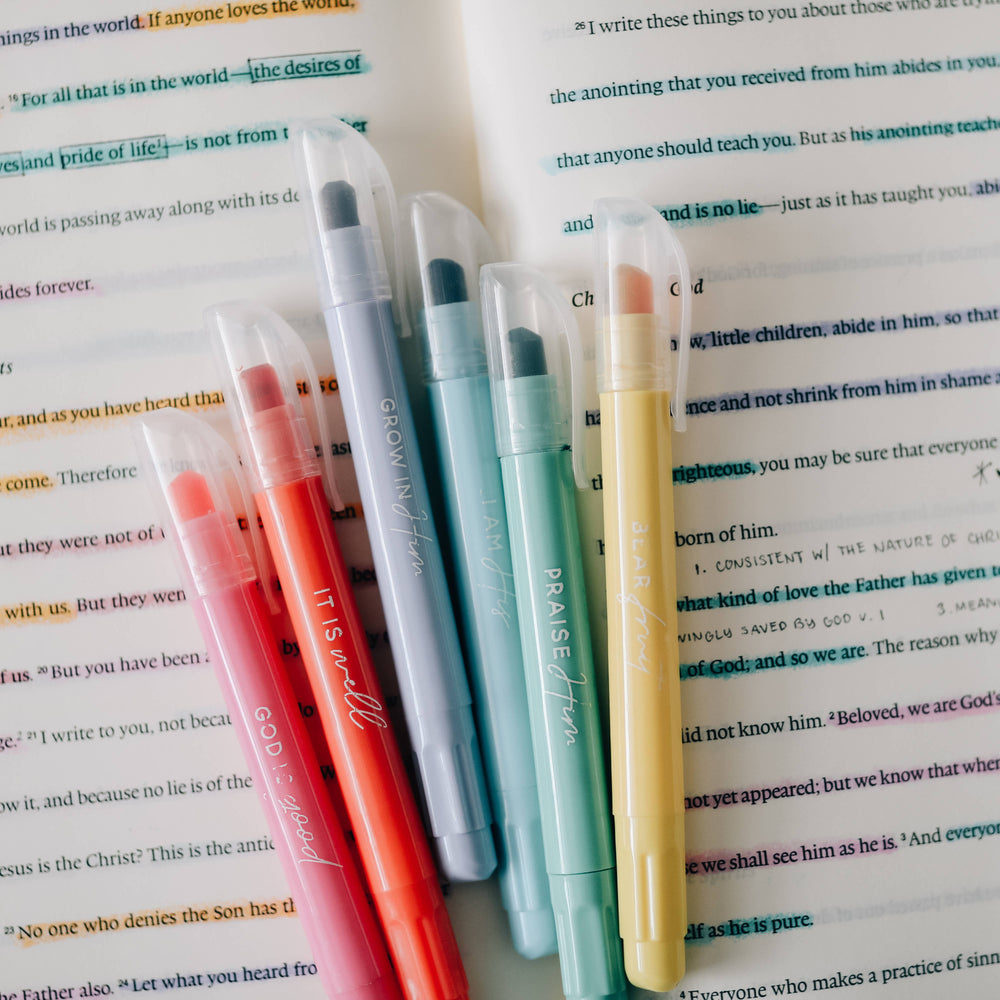 things in the world. If anyone loves the world,
¹⁶For all that is in the world—the desires of
and pride of life—is not from
world is passing away along with its
forever.
and as you have heard that
come. Therefore
they were not of
with us. But they
us. ²⁰But you have been
²¹I write to you, not
it, and because no lie is of the
is the Christ? This is the
²³No one who denies the Son has
Father also. ²⁴Let what you heard
²⁶I write these things to you about those who are
the anointing that you received from him abides in you,
that anyone should teach you. But as his anointing
and and is no lie—just as it has taught you,
God
little children, abide in him, so that
and not shrink from him in shame
righteous, you may be sure that everyone
born of him.
1. CONSISTENT W/ THE NATURE OF
what kind of love the Father has given
SAVED BY GOD V. 1 3.
of God; and so we are. The reason why
did not know him. ²Beloved, we are God's
not yet appeared; but we know that
we shall see him as he is. ³And
as he is pure.
⁴Everyone who makes a practice of
GOD IS good
IT IS well
GROW IN Him
I AM His
PRAISE Him
BEAR fruit